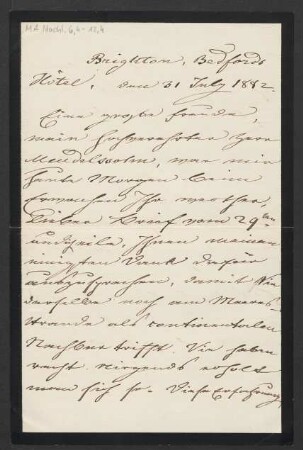 MA Nachl. 6,4-12,4
Brighton, Bedford
Hôtel, den 31 July 1882.
Eine große Freude,
mein hochverehrter Herr
Mendelssohn, war mir
heute Morgen beim
Erwachen Ihr werther,
lieber Brief vom 29ten
und Ihnen meinen
innigsten Dank dafür
auszusprechen, damit Sie
derselbe noch am Meeres-
strande als continentalen
Nachbar trifft. Sie haben
recht. Nirgends erholt
man sich so. Diese Erfahrung